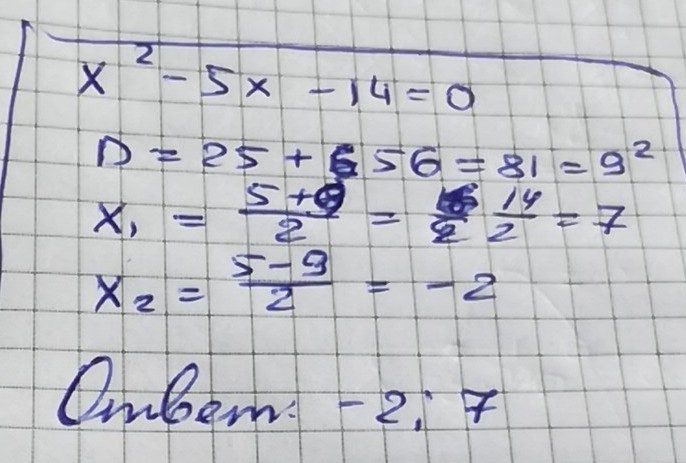 x² - 5x - 14 = 0
D = 25 + 56 = 81 = 9²
x₁ = (5+9)/2 = 14/2 = 7
x₂ = (5-9)/2 = -2
Ответ: -2; 7